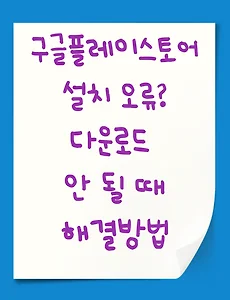 구글플레이스토어
설치 오류?
다운로드
안 될 때
해결방법